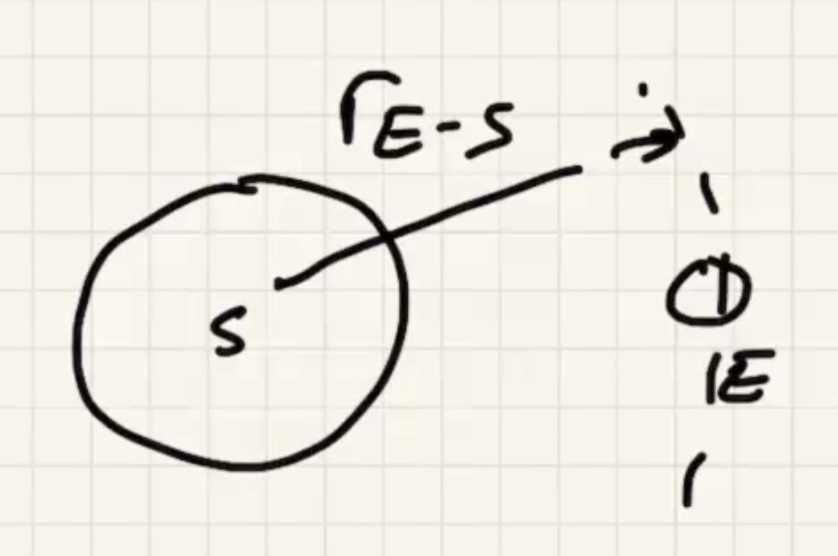 r E-S
S
E